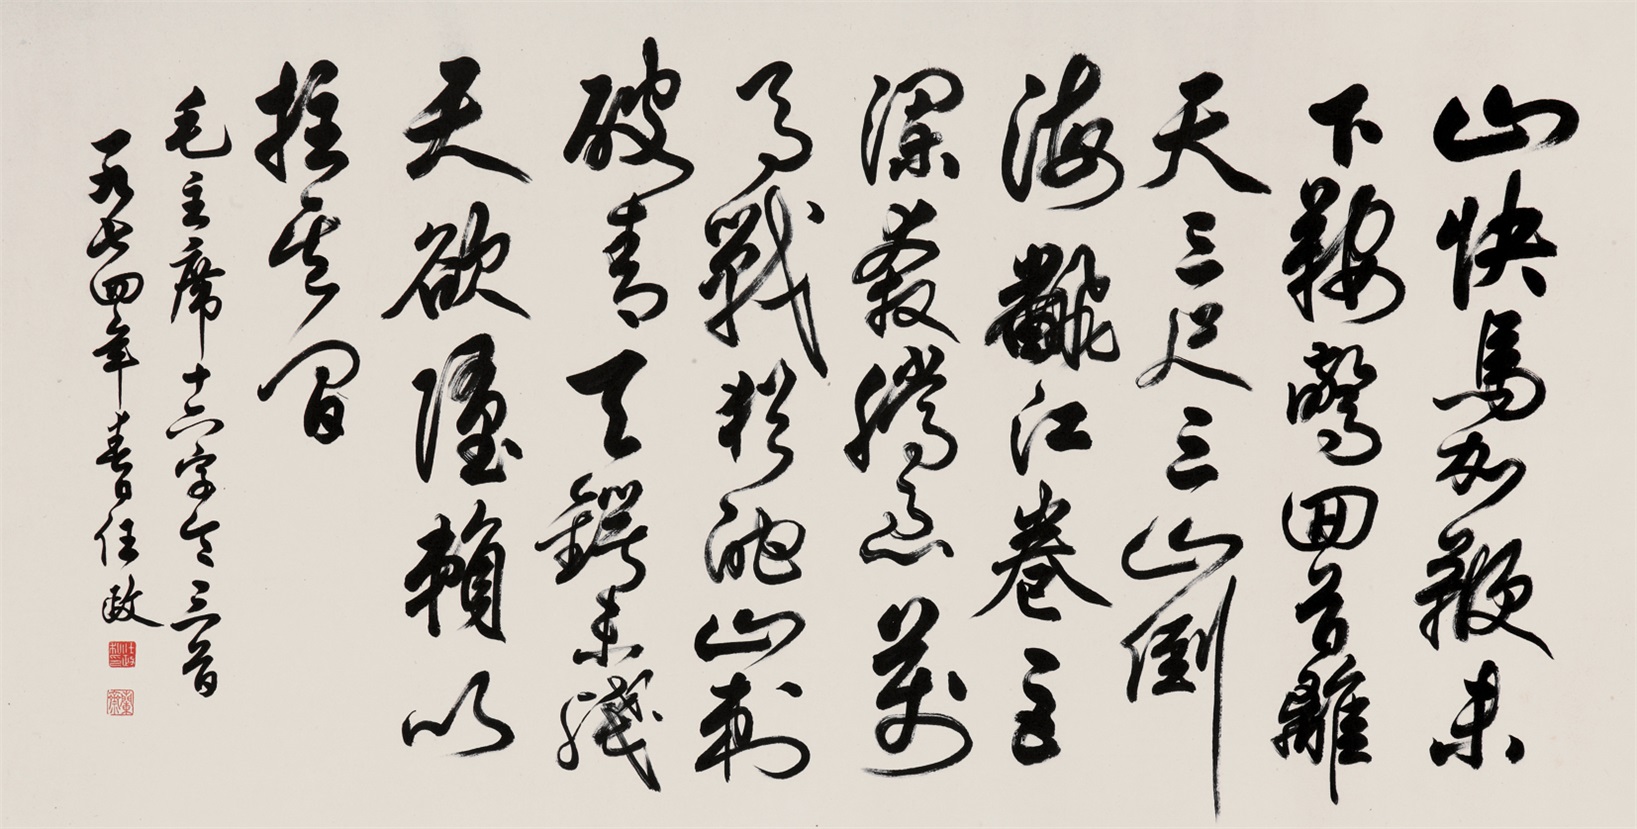 山快馬加鞭未
下鞍驚回首離
天三尺三山倒
海飜江卷巨
瀾奔騰急萬
馬戰猶酣山刺
破青天鍔未殘
天欲墮賴以
拄其間
毛主席十六字令三首
一九七四年春日任政